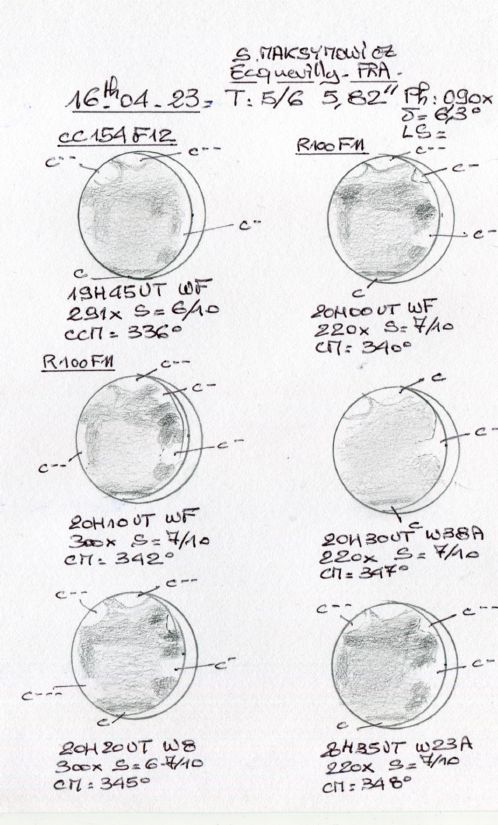 S. MAKSYMOWICZ
Ecquevilly - FRA -
16th 04 - 23 = T: 5/6 5,82" Ph: 090x
δ = 6,3°
LS =
CC 154 F12
R100 F11
c-- c-- c-- c
19H45UT WF
291x S = 6/10
CCM = 336°
c-- c-- c
20H00UT WF
220x S = 7/10
CM = 340°
R100 F11
c-- c- c- c--
20H10UT WF
300x S = 7/10
CM = 342°
c c- c
20H30UT W38A
220x S = 7/10
CM = 347°
c-- c-- c- c--- c
20H20UT W8
300x S = 6-7/10
CM = 345°
c-- c-- c- c
W23A
220x S = 7/10
CM = 348°